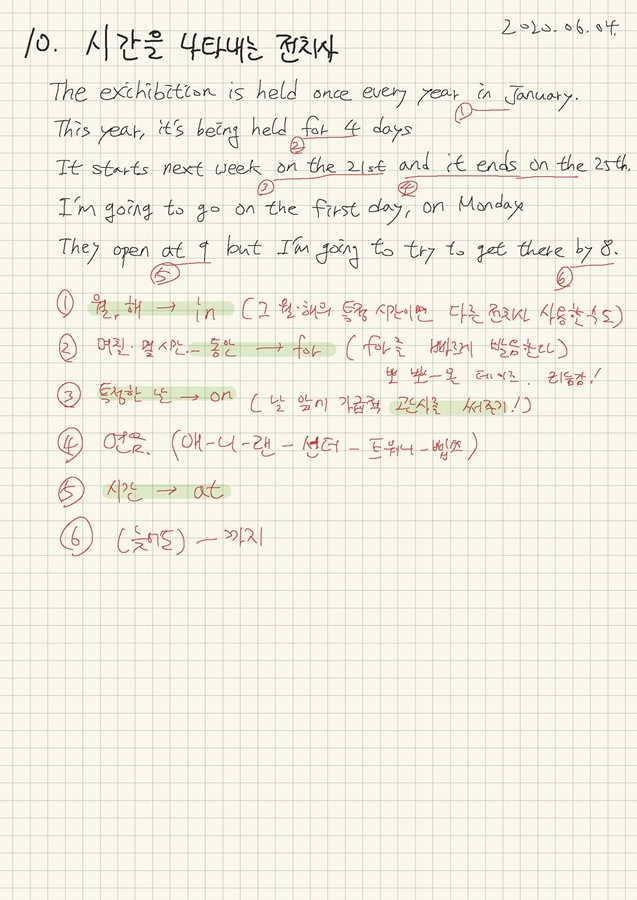 2020.06.04.
10. 시간을 나타내는 전치사
The exihibition is held once every year in January.
①
This year, it's being held for 4 days
②
It starts next week on the 21st and it ends on the 25th.
③ ④
I'm going to go on the first day, on Monday
They open at 9 but I'm going to try to get there by 8.
⑤ ⑥
① 월, 해 → in (그 월·해의 특정 시간이면 다른 전치사 사용할 수도)
② 며칠·몇 시간 ~ 동안 → for (for를 빠르게 발음한다)
뽀 온 데이즈. 리듬감!
③ 특정한 날 → on (날 앞에 가급적 관사를 써주기!)
④ 연음. (애-니-랜-선더-트워니-)
⑤ 시간 → at
⑥ (늦어도) ~ 까지